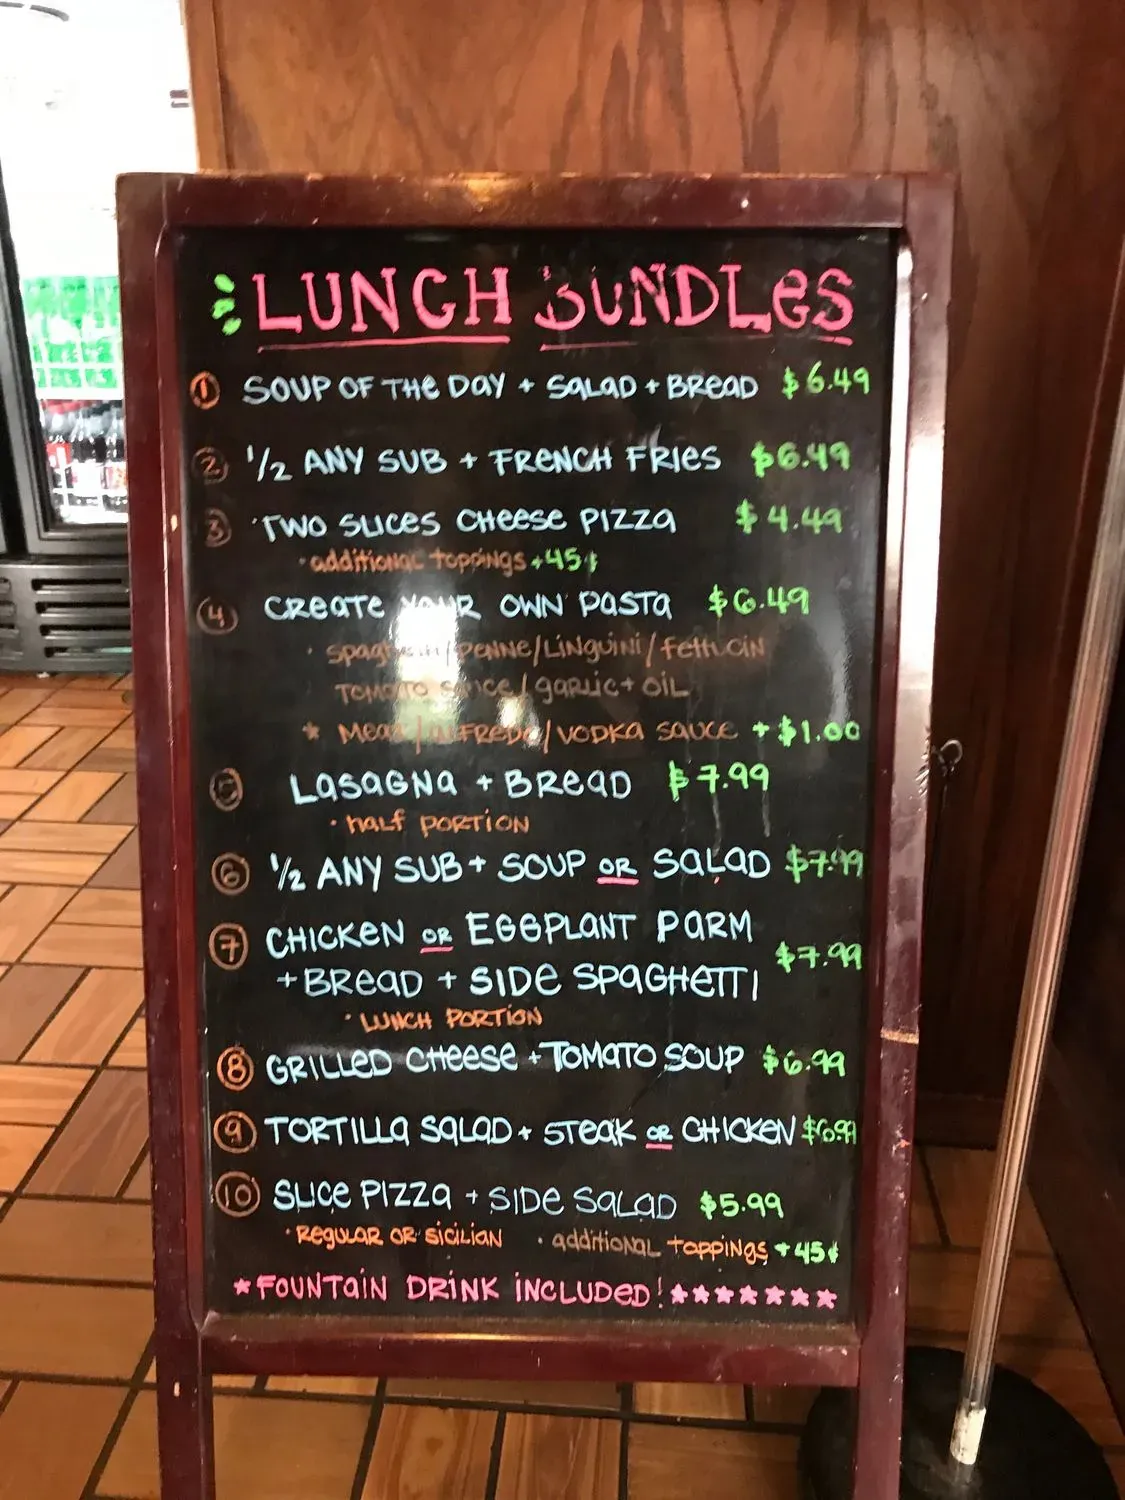 LUNCH BUNDLES
1 SOUP OF THE DAY + SALAD + BREAD $6.49
2 1/2 ANY SUB + FRENCH FRIES $6.49
3 TWO SLICES CHEESE PIZZA $4.49
· additional toppings +45¢
4 CREATE YOUR OWN PASTA $6.49
· spaghetti/PENNE/LINguiNi/fettucin
TOMATO sauce/gaRLic+ OIL
* Meat/ALFREDO/VODKA SAUCE + $1.00
5 LASAGNA + BREAD $7.99
· half PORTION
6 1/2 ANY SUB + SOUP OR SALAD $7.99
7 CHICKEN OR EGGPLANT PARM
+ BREAD + SIDE SPAGHETTI $7.99
· LUNCH PORTION
8 GRILLED CHEESE + TOMATO SOUP $6.99
9 TORTILLA SALAD + STEAK OR CHICKEN $6.99
10 SLICE PIZZA + SIDE SALAD $5.99
· REGULAR OR SICILIAN · additIONAL toppiNgs +45¢
*FOUNTAIN DRINK INCLUDED!*******